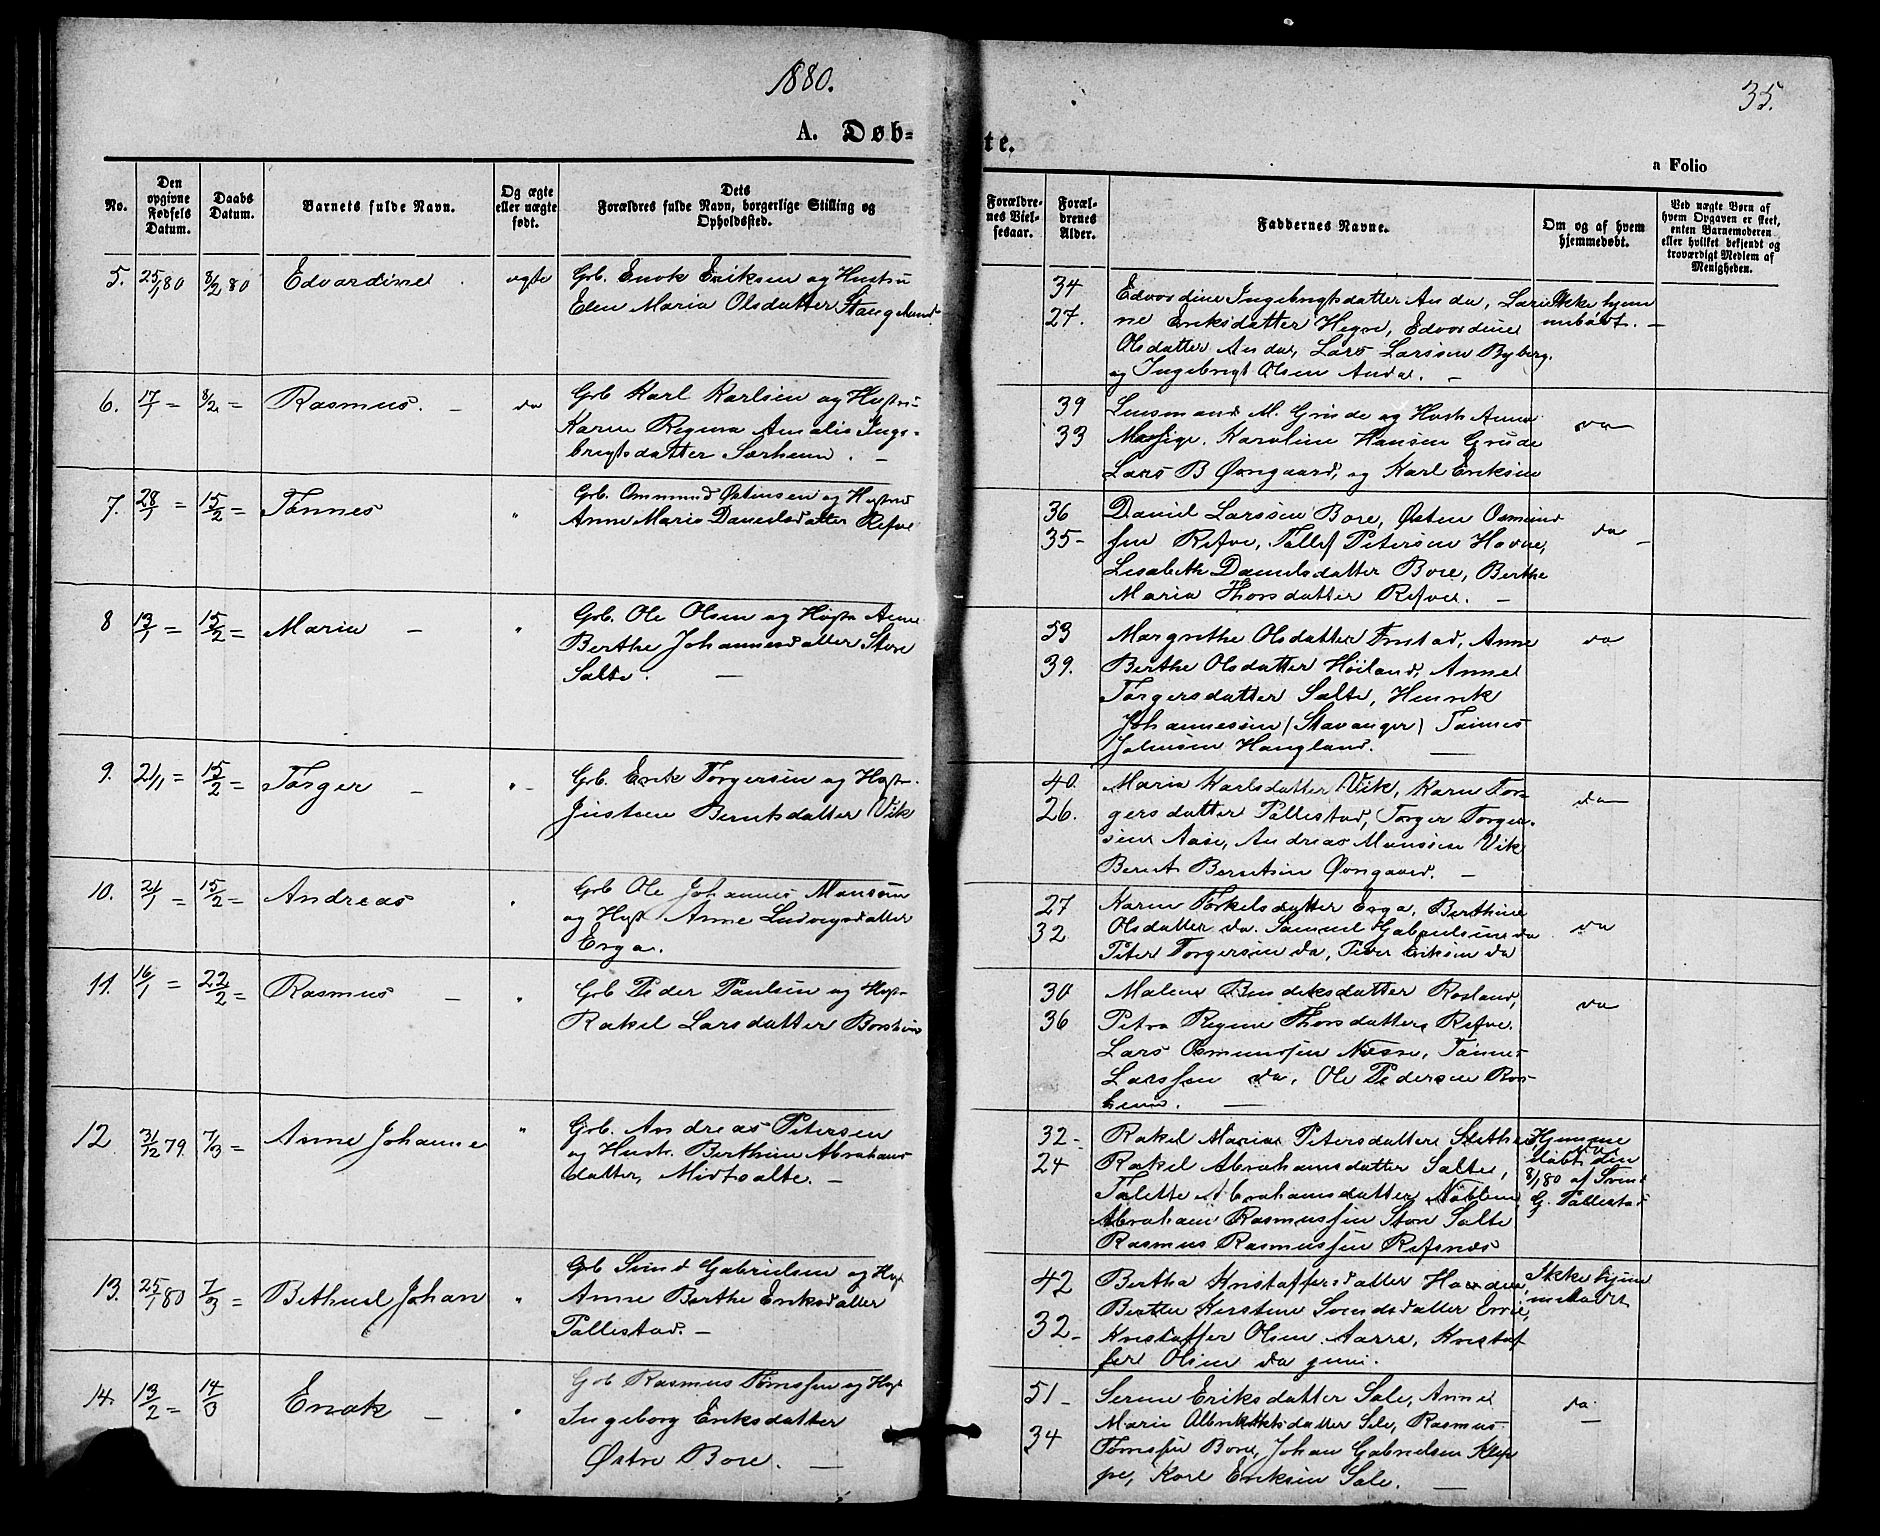 1880.
35.
A. Døb-
te.
a Folio
No.
Den opgivne Fødsels Datum.
Daabs Datum.
Barnets fulde Navn.
Og ægte eller uægte født.
Dets Forældres fulde Navn, borgerlige Stilling og Opholdssted.
Forældrenes Vielsesaar.
Forældrenes Alder.
Faddernes Navne.
Om og af hvem hjemmedøbt.
Ved uægte Børn af hvem Opgaven er skeet, enten Barnemoderen eller hvilket bekjendt og troværdigt Medlem af Menigheden.
5. 25/1 80 8/2 80 Edvardine ægte Grb. Enok Eriksen og Hustru
Elen Maria Olsdatter Stangeland
34
27.
Edvardine Ingebrigtsdatter Anda, Lari-
ne Eriksdatter Hegre, Edvardine
Olsdatter Anda, Lars Larssen Byberg
og Ingebrigt Olsen Anda. -
Ikke hjem
medøbt. -
6. 17/1 = 8/2 = Rasmus. - do Grb Karl Karlsen og Hustr:
Karen Regina Amalie Inge-
brigtsdatter Særheim. -
39
33
Lensmand M. Grude og Hust. Anna
Karoline Hansen Grude
Lars B Øvngaard, og Karl Eriksen
do
7. 28/1 = 15/2 = Tønnes " Grb. Ommund Østensen og Hustru
Anne Maria Danielsdatter Refve
36
35-
Daniel Larssen Bore, Østen Osmund
sen Refve, Tollef Petersen Havne,
Lisabeth Danielsdatter Bore, Berthe
Maria Thorsdatter Refve. -
do -
8 13/1 = 15/2 = Maria - " Grb. Ole Olsen og Hustr Anne
Berthe Johannesdatter Store
Salte. -
53
39.
Margrethe Olsdatter Friestad, Anne
Berthe Olsdatter Høiland, Anne
Torgersdatter Salte, Henrik
Johannessen (Stavanger) Tønnes
Johnsen Haugland. -
do
9. 21/1 = 15/2 = Torger - " - Grb. Erik Torgersen og Hustr.
Justine Berntsdatter Vik
40.
26.
Maria Karlsdatter Vik, Karen Tor-
gersdatter Pollestad, Torger Torger-
sen Aase, Andreas Monssen Vik
Bernt Berntsen Øvngaard. -
do
10. 21/1 = 15/2 = Andreas " Grb Ole Johannes Monssen
og Hust Anne Ludvigsdatter
Erga.
27
32
Karen Torkelsdatter Erga, Berthine
Olsdatter do. Samuel Gabrielsen do
Peter Torgersen do, Peder Eriksen do
do
11. 16/1 = 22/2 = Rasmus - " Grb Peder Paulsen og Hust
Rakel Larsdatter Borsheim
30
36
Malene Bendiksdatter Rosland,
Petra Regine Thorsdatter Refve.
Lars Osmundsen Næsse, Tønnes
Larssen do, Ole Pedersen Bors-
heim. -
do
12 31/12 79. 7/3 = Anne Johanne " Grb. Andreas Petersen
og Hustr. Berthine Abrahams
datter, Midtsalte. -
32-
24
Rakel Maria Petersdatter
Rakel Abrahamsdatter Salte,
Tolette Abrahamsdatter
Abraham Rasmussen Store Salte
Rasmus Rasmussen Refsnæs
Hjemme
døbt den
8/1 80 af Svend
G. Pollestad
13. 25/1 80 7/3 = Bethuel Johan " Grb Svend Gabrielsen og Hust
Anne Berthe Eriksdatter
Pollestad. -
42
32-
Bertha Kristoffersdatter
Berthe Kerstine Svendsdatter
Kristoffer Olsen Aarre, Kristof
fer Olsen do juni.
Ikke hjem
medøbt
14. 13/2 = 14/3 Enok - " Grb Rasmus Tømssen og Hust
Ingeborg Eriksdatter
Østre Bore. -
51-
34
Serine Eriksdatter Sele, Anne
Marie Albrektsdatter Sele, Rasmus
Tømssen Bore, Johan Gabrielsen Klep
pe, Karl Eriksen Sele. -
do